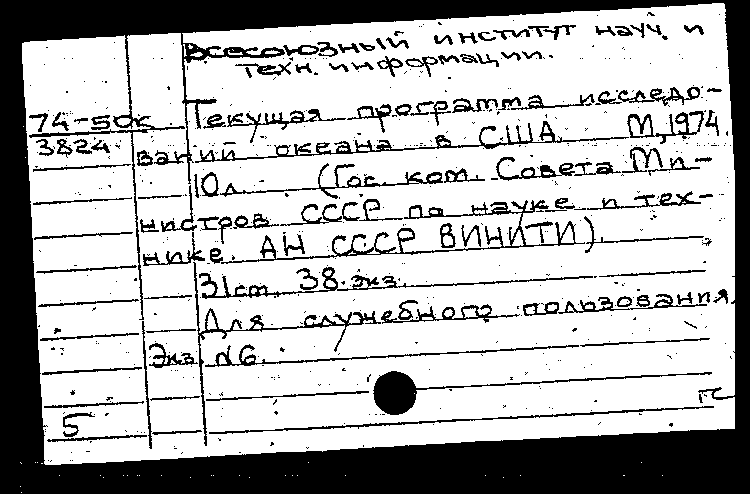 Всесоюзный институт науч. и
техн. информации.
74-50к Текущая программа исследо-
3824 ваний океана в США. М, 1974
10л. (Гос. ком. Совета Ми-
нистров СССР по науке и тех-
нике. АН СССР ВИНИТИ).
31см. 38 экз.
Для служебного пользования.
Экз. №6.
5 ГС